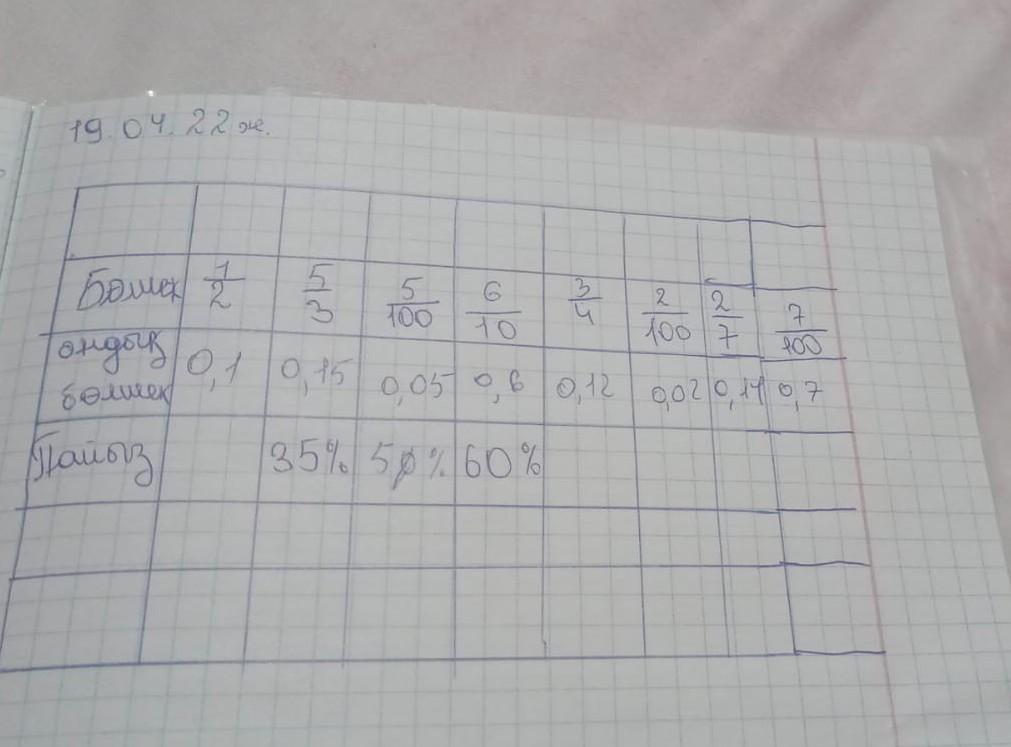 19.04.22ж.
Бөлшек 1/2 5/3 5/100 6/10 3/4 2/100 2/7 7/100
ондық 0,1 0,15 0,05 0,6 0,12 0,02 0,14 0,7
бөлшек
Пайыз 35% 5% 60%